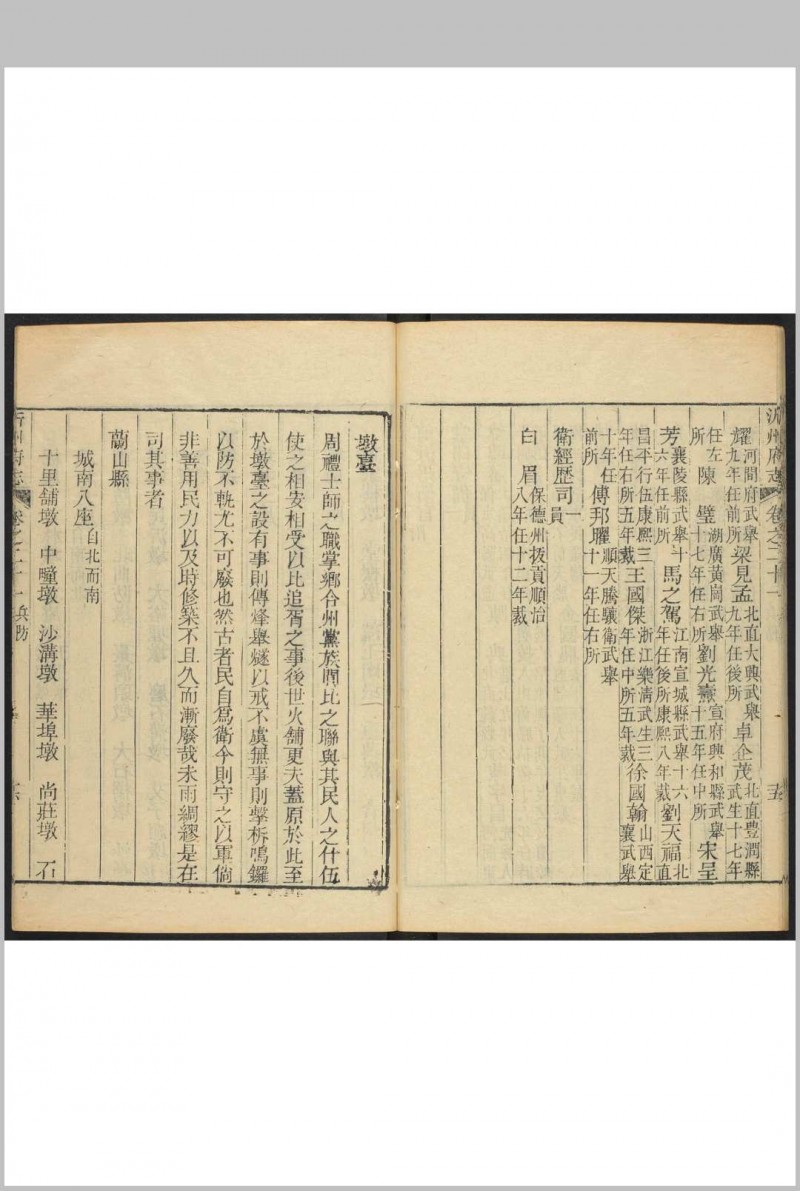 沂州府志 卷之二十一 十五
耀 河間府武舉九年任前所 梁見孟 北直大興武舉九年任後所 卓企茂 北直豊潤縣武生十七年
任左所 陳璧 湖廣黃崗武舉十七年任右所 劉光燾 宣府興和縣武舉十五年任中所 宋呈
芳 襄陵縣武舉六年任前所 馬之駕 江南宣城縣武舉十六年任後所康熙八年裁 劉天福 北直
昌平行伍康熙三年任右所五年裁 王國傑 浙江樂清武生三年任中所五年裁 徐國翰 山西定襄武舉
十年任前所 傅邦耀 順天騰驤衛武舉十一年任右所
衛經歷司 一員
白眉 保德州拔貢順治八年任十二年裁
墩臺
周禮士師之職掌鄉合州黨族閭比之聯與其民人之什伍
使之相安相受以比追胥之事後世火舖更夫蓋原於此至
於墩臺之設有事則傳烽舉燧以戒不虞無事則擊柝鳴鑼
以防不軌尤不可廢也然古者民自爲衛今則守之以軍倘
非善用民力以及時修築不且久而漸廢哉未雨綢繆是在
司其事者
蘭山縣
城南八座 自北而南
十里舖墩 中疃墩 沙溝墩 華埠墩 尚莊墩 石
沂州府志 卷之二十一 兵防 十六